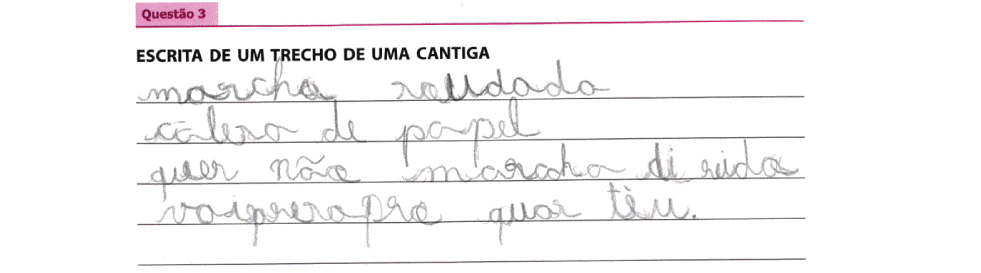 Questão 3
ESCRITA DE UM TRECHO DE UMA CANTIGA
marcha soudado
cālesa de papel
quer não marcha di reida
vaiprerapre quar tèu.